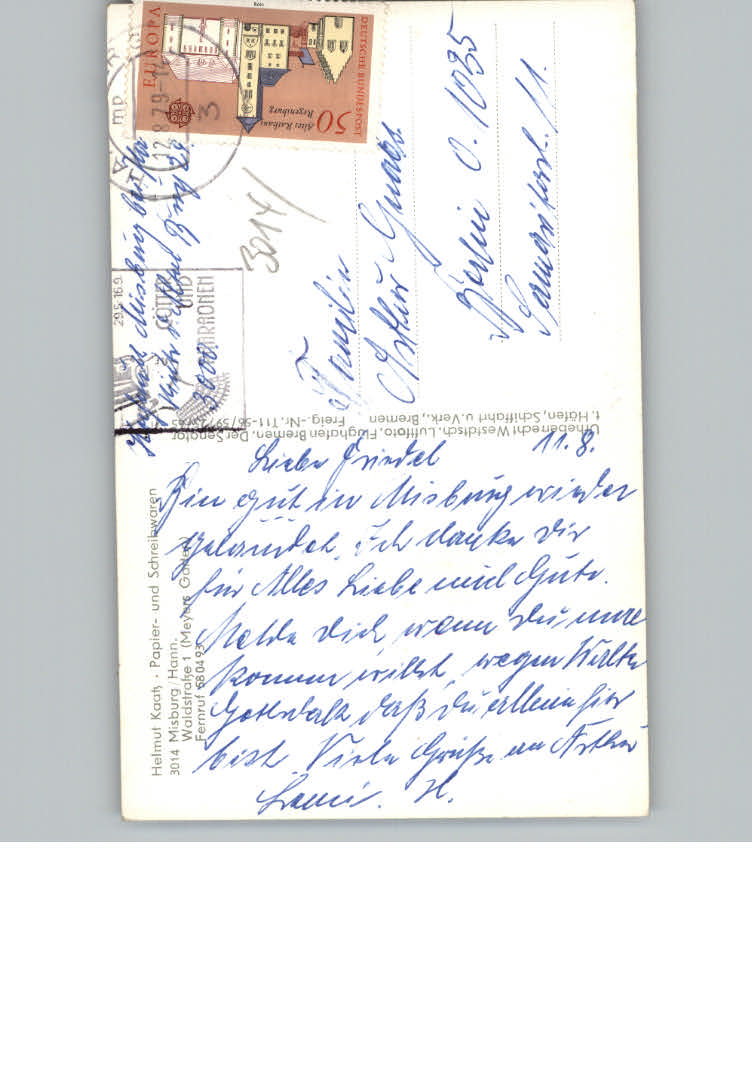 EUROPA
DEUTSCHE BUNDESPOST
Altes Rathaus
Regensburg
50
12.8.79-17
3
3014
29.5.-16.9.
GÖTTER
UND
PHARAONEN
Misburg
3000
Familie
Berlin O. 1035
11.
Urheberrecht Westdtsch. Luftfoto, Flughafen Bremen. Der Senator
f. Häfen, Schiffahrt u. Verk., Bremen Freig.-Nr.
Helmut Kaatz · Papier- und Schreibwaren
3014 Misburg/Hann.
Waldstraße 1 (Meyers Garten)
Fernruf 580493
11.8.
Liebe Friedel
Bin gut in Misburg wieder
gelandet. Ich danke Dir
für Alles Liebe und Gute.
Melde dich wenn Du mal
kommen willst, wegen
daß du allein hier
bist. Viele Grüße an Arthur
H.